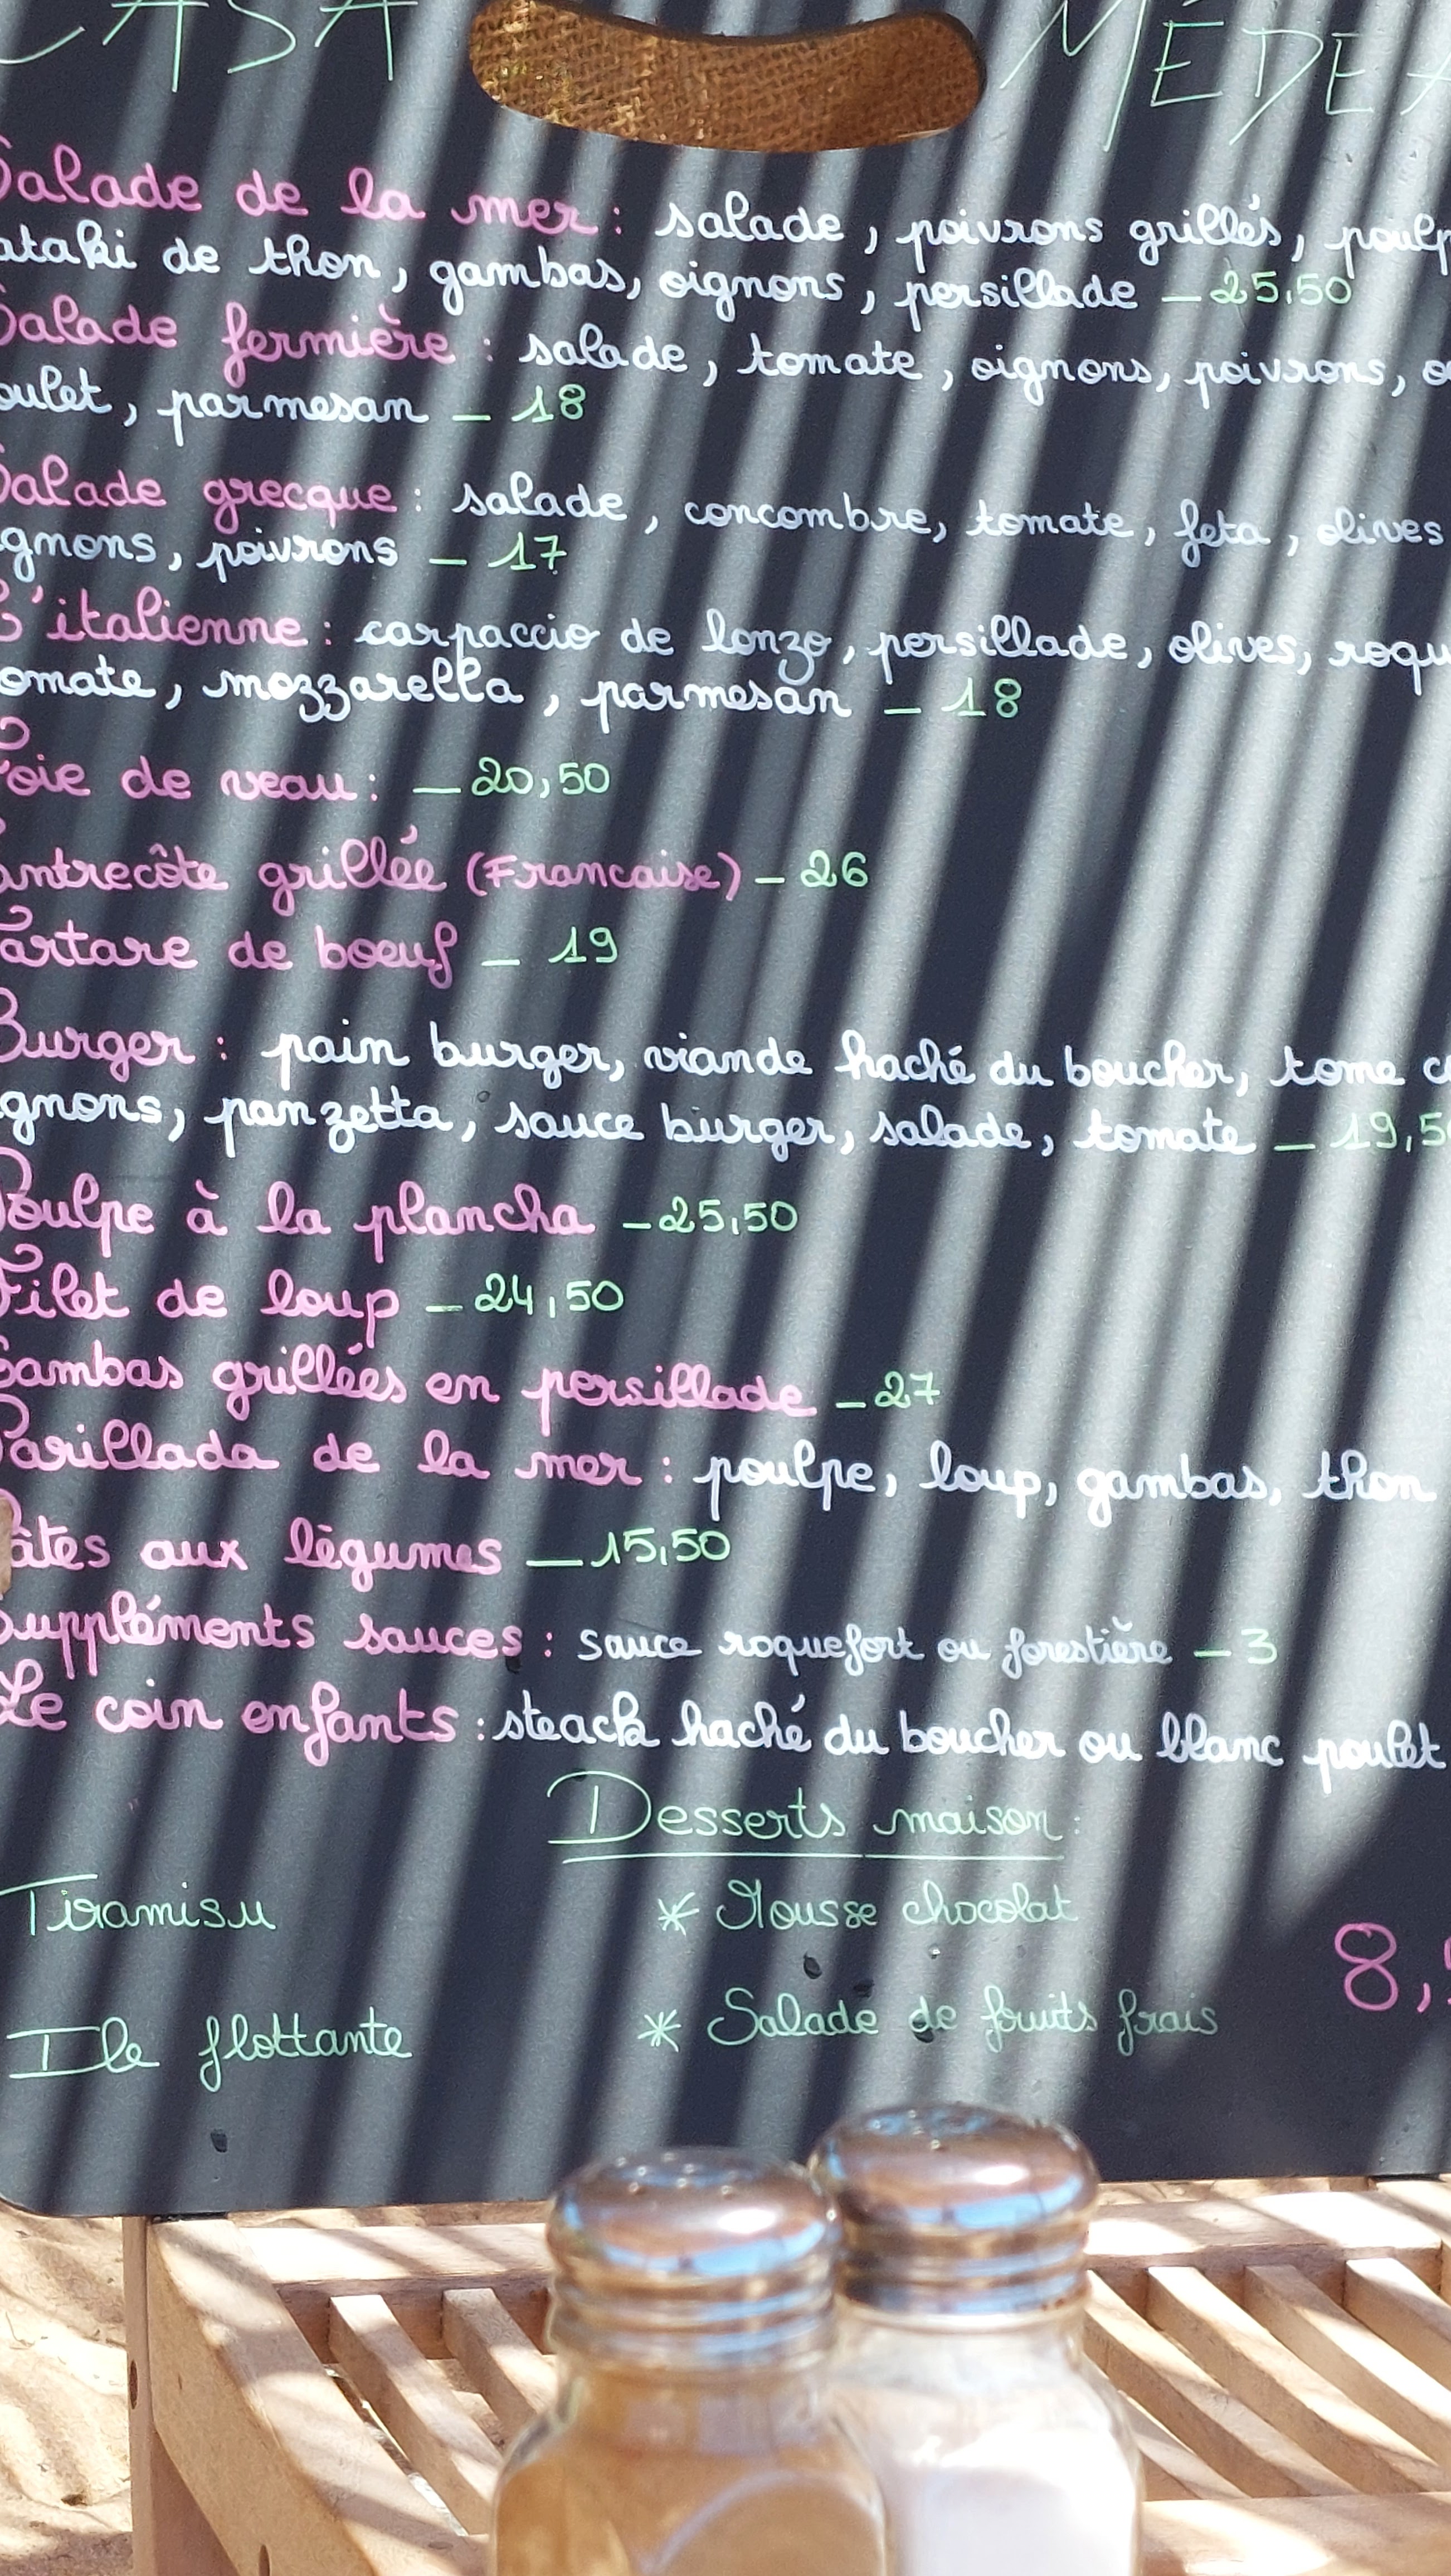 CASA MÉDEA
Salade de la mer : salade, poivrons grillés, poulp
ataki de thon, gambas, oignons, persillade - 25,50
Salade fermière : salade, tomate, oignons, poivrons,
oulet, parmesan - 18
Salade grecque : salade, concombre, tomate, feta, olives
gnons, poivrons - 17
L'italienne : carpaccio de lonzo, persillade, olives, roqu
omate, mozzarella, parmesan - 18
Foie de veau : - 20,50
Entrecôte grillée (Francaise) - 26
Tartare de boeuf - 19
Burger : pain burger, viande haché du boucher, tome
gnons, panzetta, sauce burger, salade, tomate - 19,5
Poulpe à la plancha - 25,50
Filet de loup - 24,50
Gambas grillées en persillade - 27
Parillada de la mer : poulpe, loup, gambas, thon
Pâtes aux légumes - 15,50
Suppléments sauces : sauce roquefort ou forestière - 3
Le coin enfants : steack haché du boucher ou blanc poulet
Desserts maison :
Tiramisu * Mousse chocolat
8,
Ile flottante * Salade de fruits frais